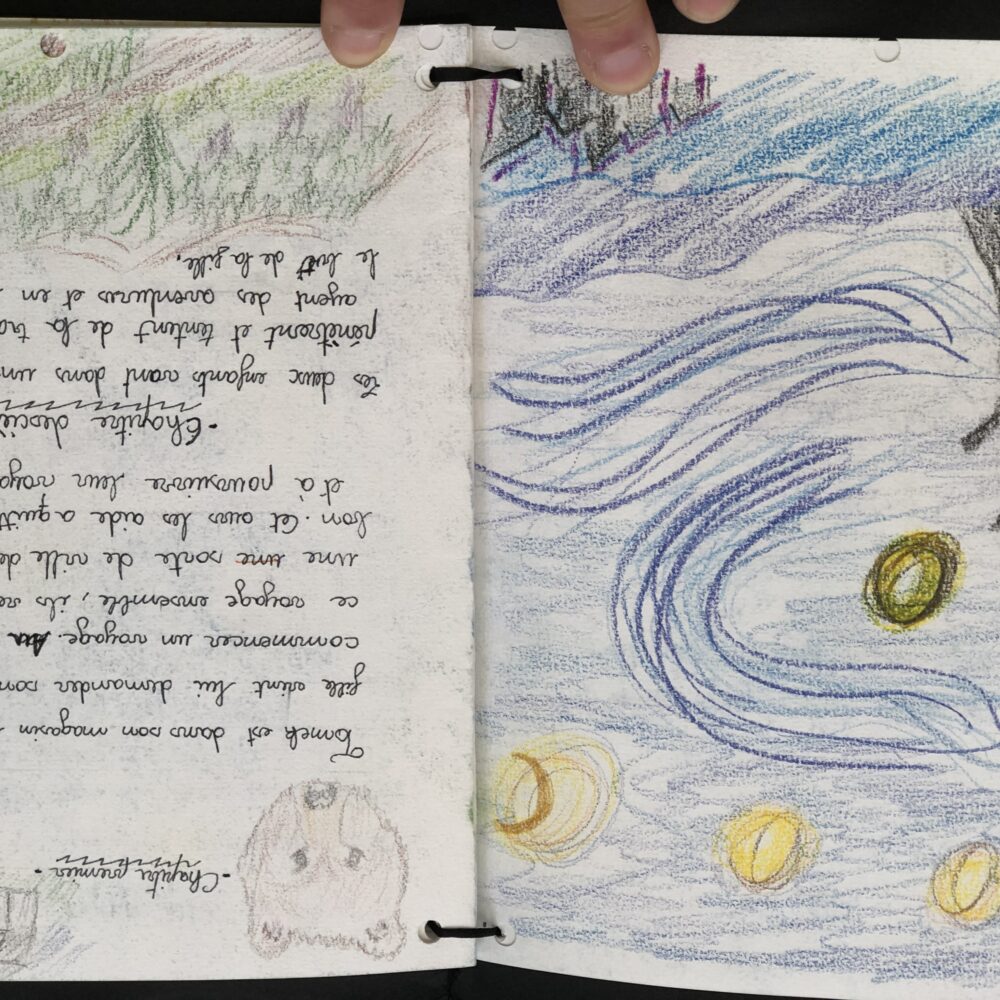 -Chapitre premier-
Tomek est dans son magasin
fille vient lui demander
commencer un voyage.
ce voyage ensemble, ils re
une sorte de ville de
bon. Cet ours les aide a quitt
et à poursuivre leur voya
-Chapitre
Les deux enfants vont dans un
pénètrent et tentent de la tra
ayent des aventures et en
le but de la fille.